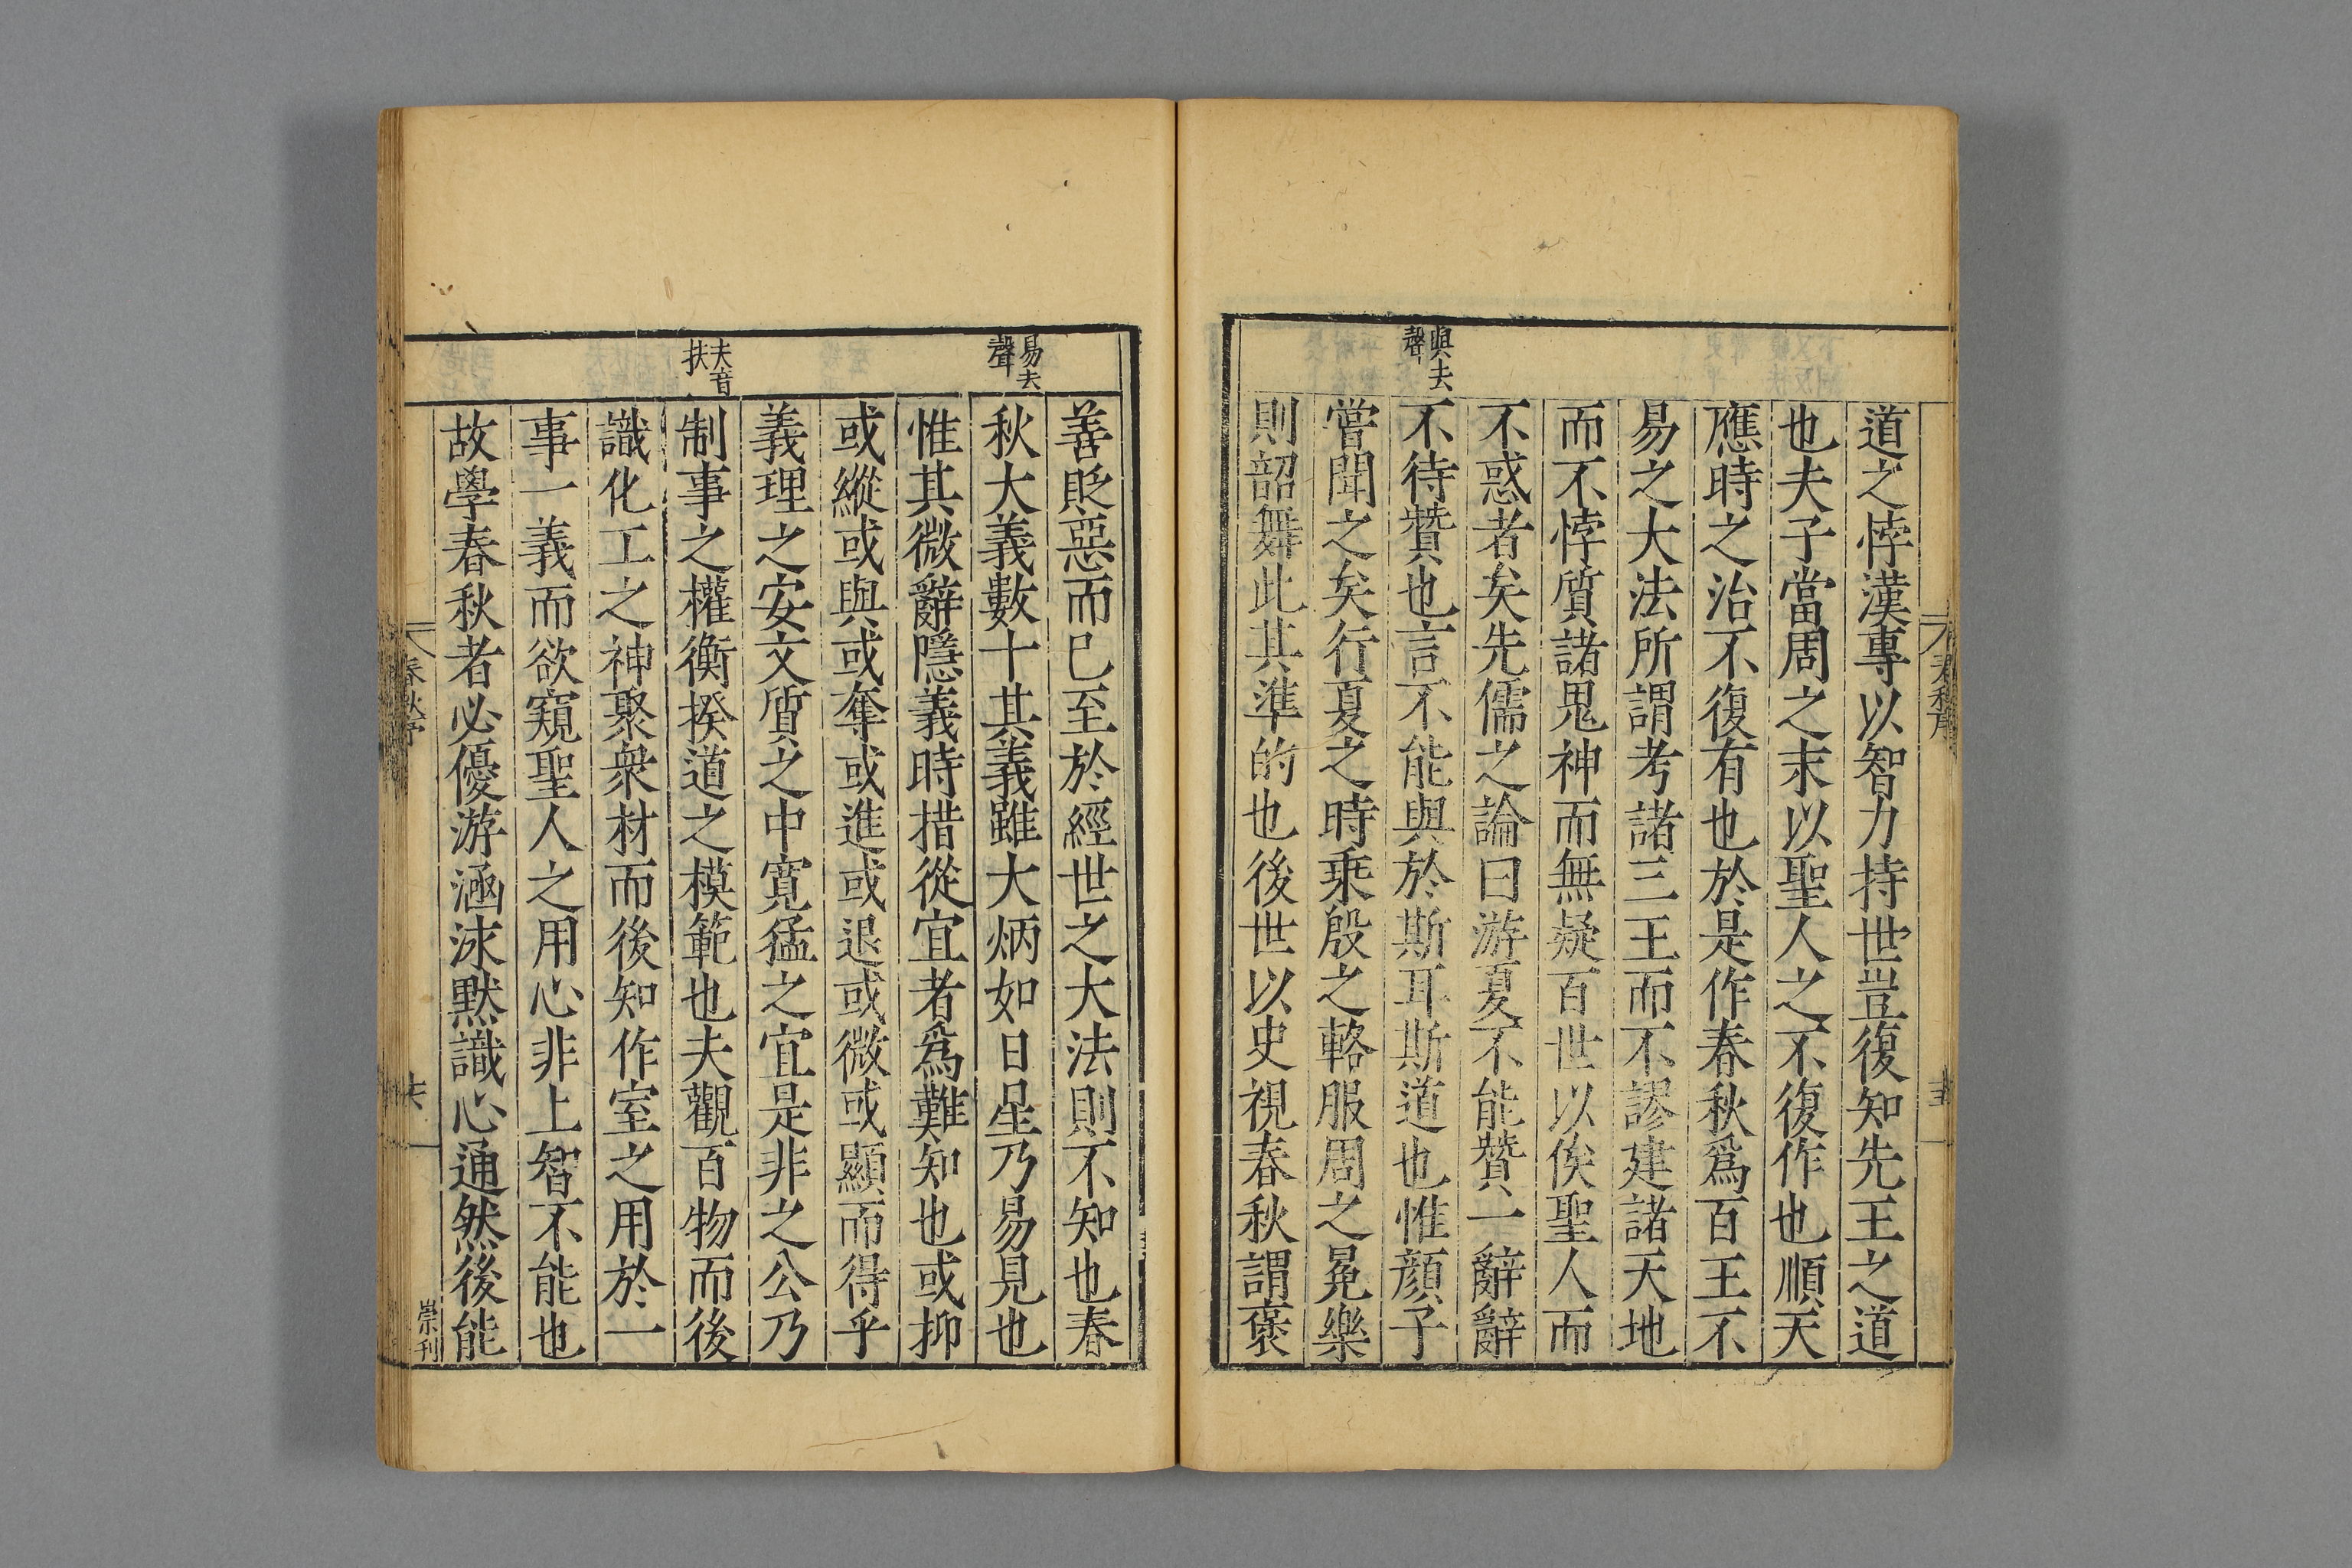 道之悖漢專以智力持世豈復知先王之道
也夫子當周之末以聖人之不復作也順天
應時之治不復有也於是作春秋爲百王不
易之大法所謂考諸三王而不謬建諸天地
而不悖質諸鬼神而無疑百世以俟聖人而
不惑者矣先儒之論曰游夏不能贊一辭辭
與去聲
不待贊也言不能與於斯耳斯道也惟顔子
嘗聞之矣行夏之時乘殷之輅服周之冕樂
則韶舞此其準的也後世以史視春秋謂褒
善貶惡而已至於經世之大法則不知也春
易去聲
秋大義數十其義雖大炳如日星乃易見也
惟其微辭隱義時措從宜者爲難知也或抑
或縱或與或奪或進或退或微或顯而得乎
義理之安文質之中寬猛之宜是非之公乃
夫音扶
制事之權衡揆道之模範也夫觀百物而後
識化工之神聚衆材而後知作室之用於一
事一義而欲窺聖人之用心非上智不能也
故學春秋者必優游涵泳默識心通然後能
春秋序
崇刊